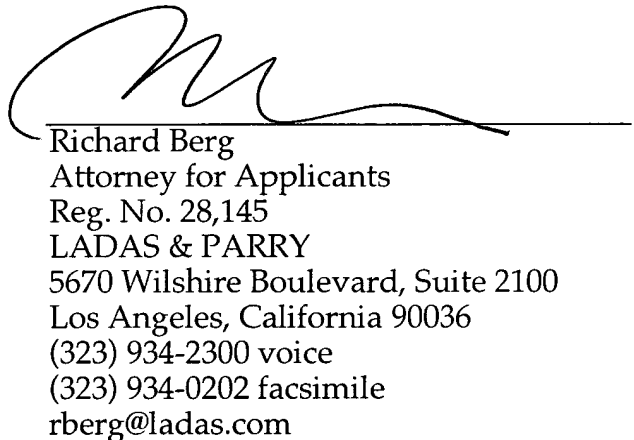 Richard Berg
Attorney for Applicants
Reg. No. 28,145
LADAS & PARRY
5670 Wilshire Boulevard, Suite 2100
Los Angeles, California 90036
(323) 934-2300 voice
(323) 934-0202 facsimile
rberg@ladas.com